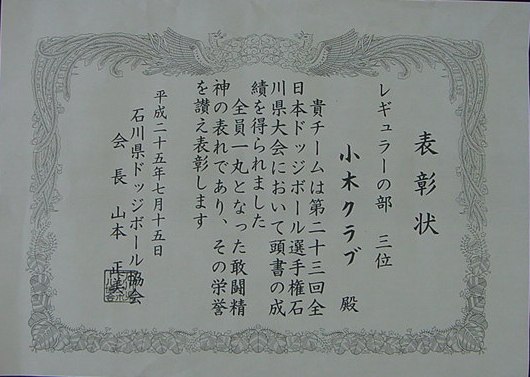 表彰状
レギュラーの部 三位
小木クラブ 殿
貴チームは第二十三回全
日本ドッジボール選手権石
川県大会において頭書の成
績を得られました
全員一丸となった敢闘精
神の表れであり、その栄誉
を讃え表彰します
平成二十五年七月十五日
石川県ドッジボール協会
会長 山本 正美